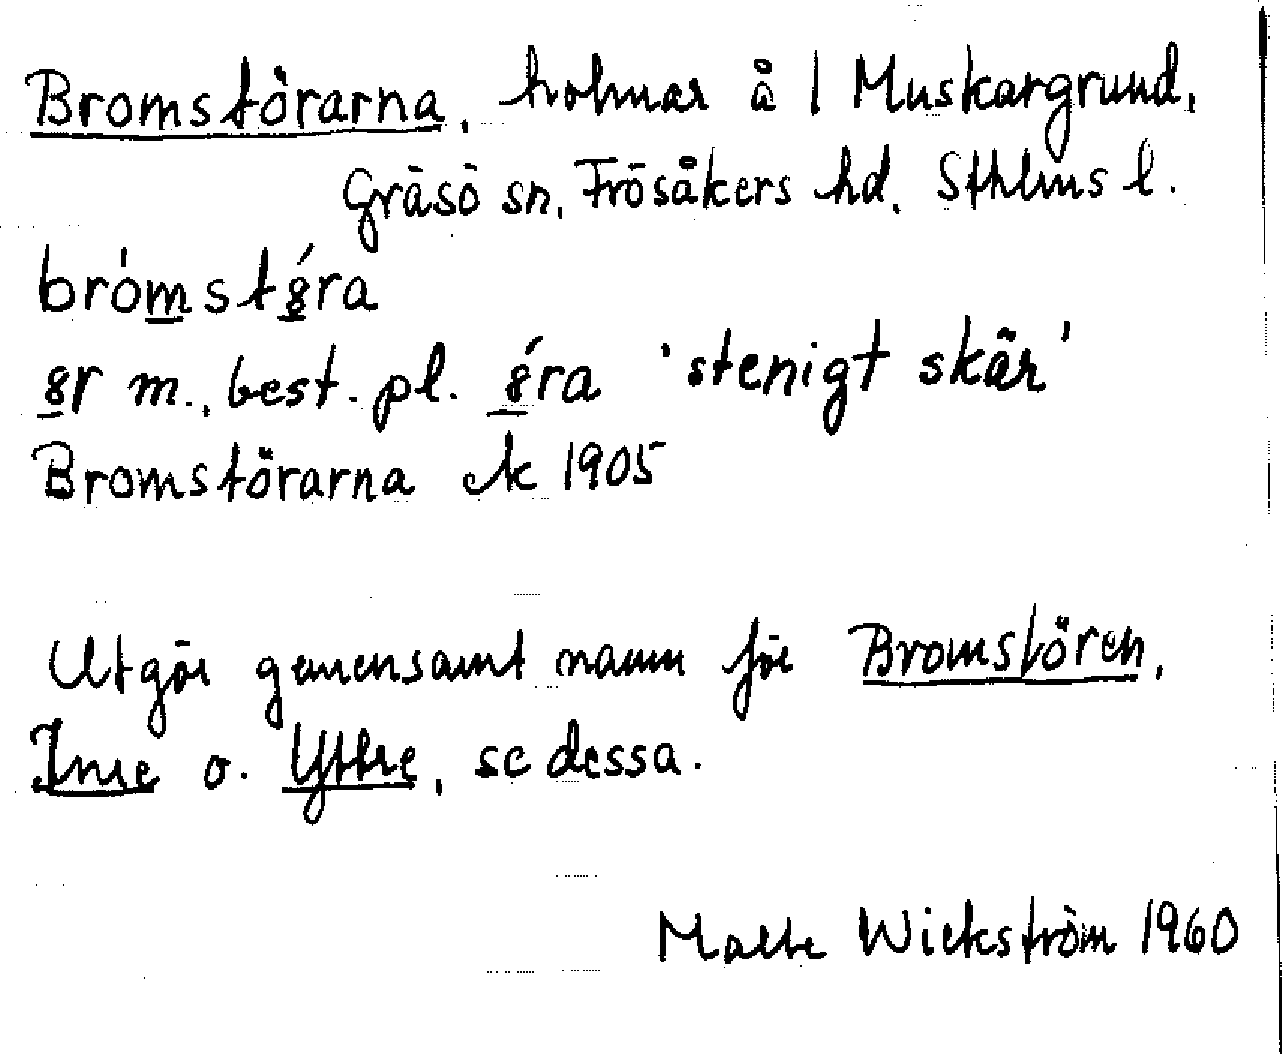 Bromstörarna, holmar å 1 Muskargrund,
Gräsö sn, Frösåkers hd. Sthlms l.
bròmstǵra
gr m., best. pl. ǵra 'stenigt skär'
Bromstörarna ek 1905
Utgör gemensamt namn för Bromstören,
Inre o. Yttre, se dessa.
Malte Wickström 1960